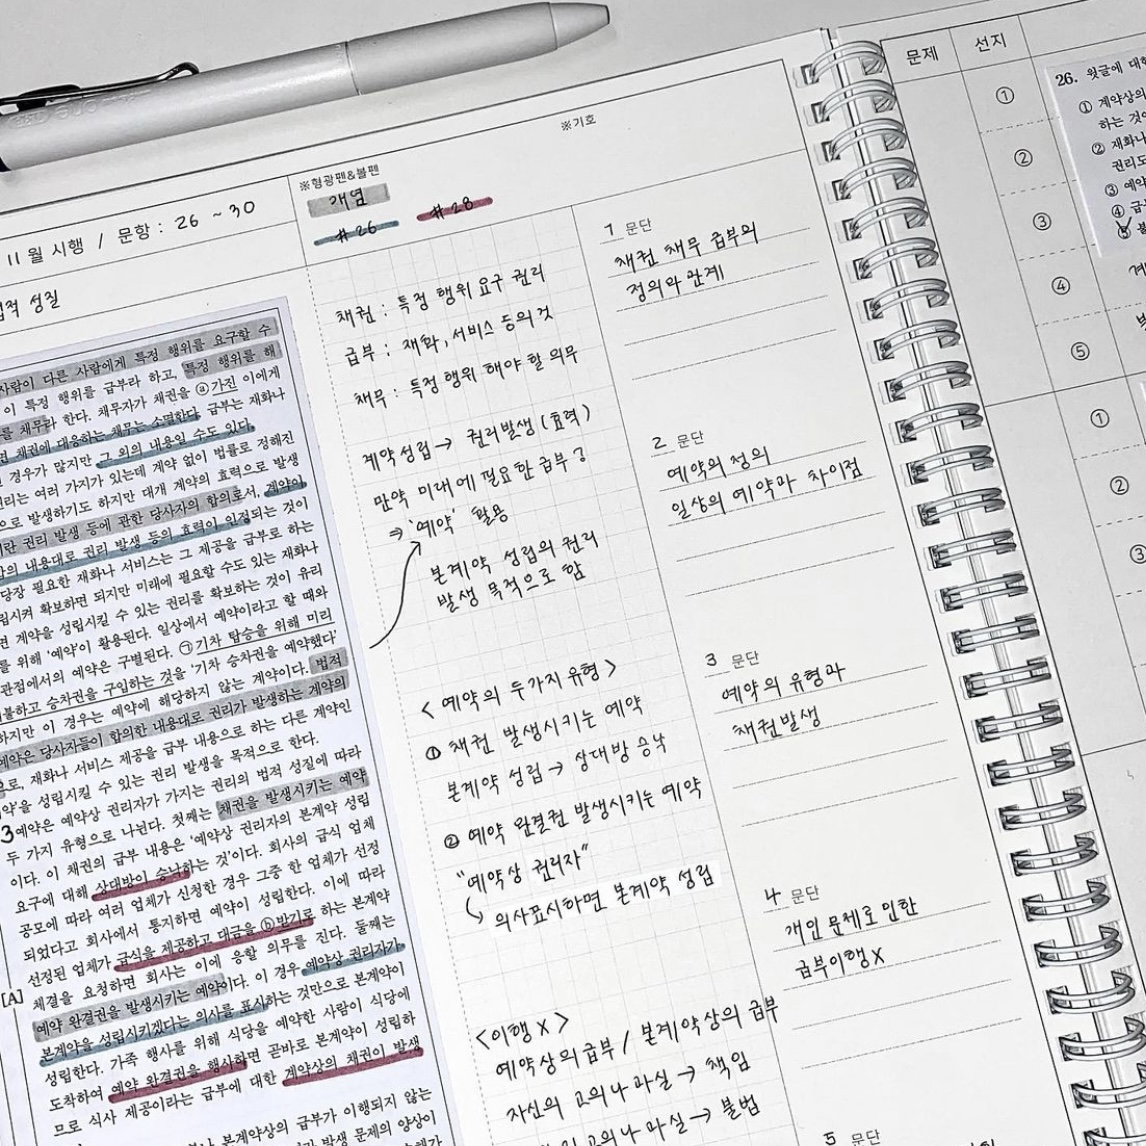 ※기호
※형광펜&볼펜
개념
#26
#28
11월 시행 / 문항 : 26 ~ 30
성질
사람이 다른 사람에게 특정 행위를 요구할 수
이 특정 행위를 급부라 하고, 특정 행위를 해
를 채무라 한다. 채무자가 채권을 ⓐ가진 이에게
면 채권에 대응하는 채무는 소멸한다. 급부는 재화나
경우가 많지만 그 외의 내용일 수도 있다.
리는 여러 가지가 있는데 계약 없이 법률로 정해진
으로 발생하기도 하지만 대개 계약의 효력으로 발생
란 권리 발생 등에 관한 당사자의 합의로서, 계약이
의 내용대로 권리 발생 등의 효력이 인정되는 것이
당장 필요한 재화나 서비스는 그 제공을 급부로 하는
립시켜 확보하면 되지만 미래에 필요할 수도 있는 재화나
면 계약을 성립시킬 수 있는 권리를 확보하는 것이 유리
를 위해 '예약'이 활용된다. 일상에서 예약이라고 할 때와
관점에서의 예약은 구별된다. ㉠기차 탑승을 위해 미리
불하고 승차권을 구입하는 것을 '기차 승차권을 예약했다'
하지만 이 경우는 예약에 해당하지 않는 계약이다. 법적
예약은 당사자들이 합의한 내용대로 권리가 발생하는 계약의
으로, 재화나 서비스 제공을 급부 내용으로 하는 다른 계약인
약'을 성립시킬 수 있는 권리 발생을 목적으로 한다.
3 예약은 예약상 권리자가 가지는 권리의 법적 성질에 따라
두 가지 유형으로 나뉜다. 첫째는 채권을 발생시키는 예약
이다. 이 채권의 급부 내용은 '예약상 권리자의 본계약 성립
요구에 대해 상대방이 승낙하는 것'이다. 회사의 급식 업체
공모에 따라 여러 업체가 신청한 경우 그중 한 업체가 선정
되었다고 회사에서 통지하면 예약이 성립한다. 이에 따라
선정된 업체가 급식을 제공하고 대금을 ⓑ받기로 하는 본계약
체결을 요청하면 회사는 이에 응할 의무를 진다. 둘째는
[A]
예약 완결권을 발생시키는 예약이다. 이 경우 예약상 권리자가
본계약을 성립시키겠다는 의사를 표시하는 것만으로 본계약이
성립한다. 가족 행사를 위해 식당을 예약한 사람이 식당에
도착하여 예약 완결권을 행사하면 곧바로 본계약이 성립하
므로 식사 제공이라는 급부에 대한 계약상의 채권이 발생
본계약상의 급부가 이행되지 않는
발생 문제의 양상이
채권 : 특정 행위 요구 권리
급부 : 재화, 서비스 등의 것
채무 : 특정 행위 해야 할 의무
계약성립 → 권리발생 (효력)
만약 미래에 필요한 급부?
⇒ '예약' 활용
본계약 성립의 권리
발생 목적으로 함
<예약의 두가지 유형>
① 채권 발생시키는 예약
본계약 성립 → 상대방 승낙
② 예약 완결권 발생시키는 예약
"예약상 권리자"
↳ 의사표시하면 본계약 성립
<이행 X>
예약상의 급부 / 본계약상의 급부
자신의 고의나 과실 → 책임
고의나 과실 → 불법
1 문단
채권 채무 급부의
정의와 관계
2 문단
예약의 정의
일상의 예약과 차이점
3 문단
예약의 유형과
채권발생
4 문단
개인 문제로 인한
급부이행 X
5 문단
문제 선지
①
②
③
④
⑤
①
②
③
26. 윗글에 대한
① 계약상의
하는 것
② 재화나
권리도
③ 예약
④ 급부
⑤